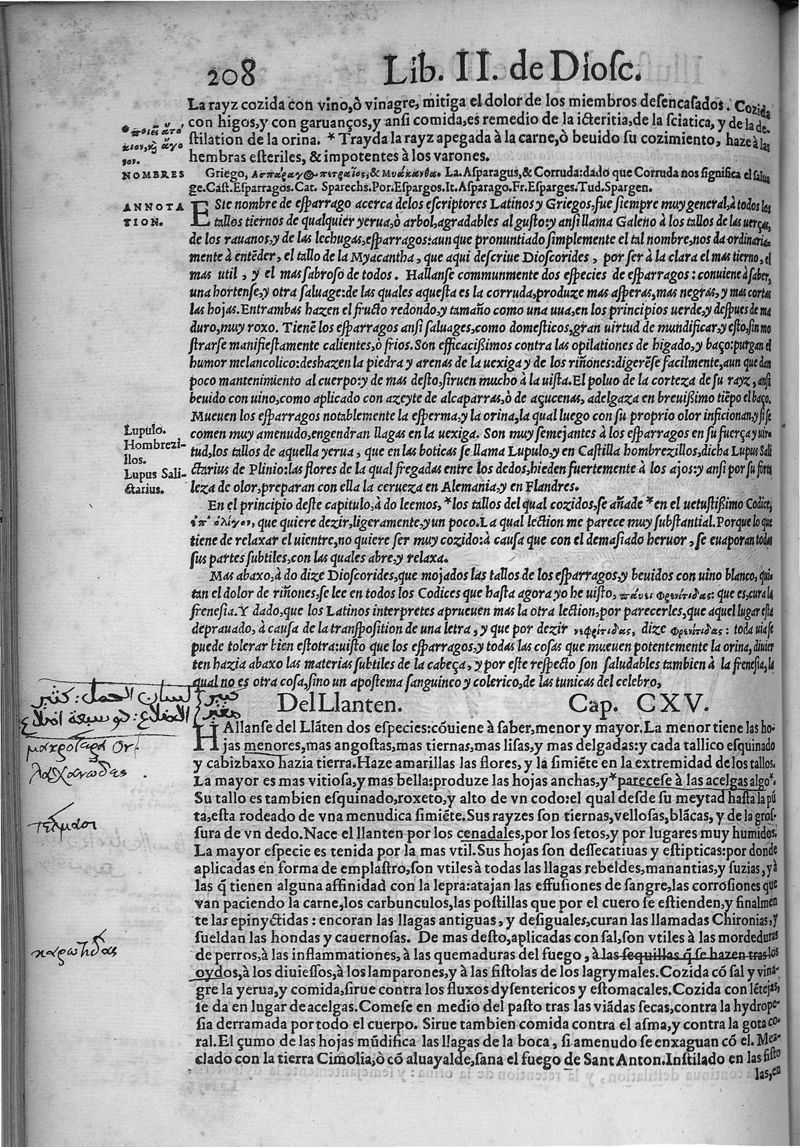 208
Lib. II. de Diosc.
La rayz cozida con vino, ò vinagre, mitiga el dolor de los miembros desencasados. Cozida
con higos, y con garuanços, y ansi comida, es remedio de la icteritia, de la sciatica, y de la de-
stilation de la orina. * Trayda la rayz apegada à la carne, ò beuido su cozimiento, haze à las
hembras esteriles, & impotentes à los varones.
NOMBRES
Griego, Ασπάραγος πετραῖος, & Μυάκανθα. La. Asparagus, & Corruda: dado que Corruda nos significa el salua
ge. Cast. Esparragos. Cat. Sparechs. Por. Espargos. It. Asparago. Fr. Esparges. Tud. Spargen.
ANNOTA
TION.
ESte nombre de esparrago acerca delos escriptores Latinos y Griegos, fue siempre muy general, à todos los
tallos tiernos de qualquier yerua, ò arbol, agradables al gusto: y ansi llama Galeno à los tallos de las uerças,
de los rauanos, y de las lechugas, esparragos: aun que pronuntiado simplemente el tal nombre, nos da ordinaria-
mente à entēder, el tallo de la Myacantha, que aqui descriue Dioscorides, por ser à la clara el mas tierno, el
mas util, y el mas sabroso de todos. Hallanse communmente dos especies de esparragos: conuiene à saber,
una hortense, y otra saluage: de las quales aquesta es la corruda, produze mas asperas, mas negras, y mas cortas
las hojas. Entrambas hazen el fructo redondo, y tamaño como una uua, en los principios uerde, y despues de ma
duro, muy roxo. Tienē los esparragos ansi saluages, como domesticos, gran uirtud de mundificar, y esto, sin mo
strarse manifiestamente calientes, ò frios. Son efficacißimos contra las opilationes de higado, y baço: purgan el
humor melancolico: deshazen la piedra y arenas de la uexiga y de los riñones: digerēse facilmente, aun que dan
poco mantenimiento al cuerpo: y de mas desto, siruen mucho à la uista. El poluo de la corteza de su rayz, ansi
beuido con uino, como aplicado con azeyte de alcaparras, ò de açucenas, adelgaza en breuißimo tiēpo el baço.
Mueuen los esparragos notablemente la esperma, y la orina, la qual luego con su proprio olor inficionan, y si se
comen muy amenudo, engendran llagas en la uexiga. Son muy semejantes à los esparragos en su fuerça y uir
tud, los tallos de aquella yerua, que en las boticas se llama Lupulo, y en Castilla hombrezillos, dicha Lupus Sali
ctarius de Plinio: las flores de la qual fregadas entre los dedos, hieden fuertemente à los ajos: y ansi por su forta
leza de olor, preparan con ella la cerueza en Alemania, y en Flandres.
Lupulo.
Hombrezi-
llos.
Lupus Sali-
ctarius.
En el principio deste capitulo, à do leemos, *los tallos del qual cozidos, se añade *en el uetustißimo Codice,
ἐπ' ὀλίγον, que quiere dezir, ligeramente, y un poco. La qual lection me parece muy substantial. Porque lo que
tiene de relaxar el uientre, no quiere ser muy cozido: à causa que con el demasiado heruor, se euaporan todas
sus partes subtiles, con las quales abre, y relaxa.
Mas abaxo, à do dize Dioscorides, que mojados las tallos de los esparragos, y beuidos con uino blanco, qui
tan el dolor de riñones, se lee en todos los Codices que hasta agora yo he uisto, φρενίτιδας: que es, cura la
frenesia. Y dado, que los Latinos interpretes aprueuen mas la otra lection, por parecerles, que aquel lugar esta
deprauado, à causa de la transposition de una letra, y que por dezir νεφρίτιδας, dize φρενίτιδας: toda uia se
puede tolerar bien estotra: uisto que los esparragos, y todas las cosas que mueuen potentemente la orina, diuier
ten hazia abaxo las materias subtiles de la cabeça, y por este respecto son saludables tambien à la frenesia, la
qual no es otra cosa, sino un apostema sanguineo y colerico, de las tunicas del celebro,
Del Llanten. Cap. CXV.
HAllanse del Llāten dos especies: cōuiene à saber, menor y mayor. La menor tiene las ho-
jas menores, mas angostas, mas tiernas, mas lisas, y mas delgadas: y cada tallico esquinado
y cabizbaxo hazia tierra. Haze amarillas las flores, y la simiēte en la extremidad de los tallos.
La mayor es mas vitiosa, y mas bella: produze las hojas anchas, y *parecese à las acelgas algo*.
Su tallo es tambien esquinado, roxeto, y alto de vn codo: el qual desde su meytad hasta la pū
ta, esta rodeado de vna menudica simiēte. Sus rayzes son tiernas, vellosas, blācas, y de la gros-
sura de vn dedo. Nace el llanten por los cenadales, por los setos, y por lugares muy humidos.
La mayor especie es tenida por la mas vtil. Sus hojas son dessecatiuas y estipticas: por donde
aplicadas en forma de emplastro, son vtiles à todas las llagas rebeldes, manantias, y suzias, y à
las q̄ tienen alguna affinidad con la lepra: atajan las effusiones de sangre, las corrosiones que
van paciendo la carne, los carbunculos, las postillas que por el cuero se estienden, y finalmen
te las epinyctidas: encoran las llagas antiguas, y desiguales, curan las llamadas Chironias, y
sueldan las hondas y cauernosas. De mas desto, aplicadas con sal, son vtiles à las mordeduras
de perros, à las inflammationes, à las quemaduras del fuego, à las sequillas q̄ se hazen tras los
oydos, à los diuiessos, à los lamparones, y à las fistolas de los lagrymales. Cozida cō sal y vina-
gre la yerua, y comida, sirue contra los fluxos dysentericos y estomacales. Cozida con lētejas,
se da en lugar de acelgas. Comese en medio del pasto tras las viādas secas, contra la hydrope-
sia derramada por todo el cuerpo. Sirue tambien comida contra el asma, y contra la gota co-
ral. El çumo de las hojas mūdifica las llagas de la boca, si amenudo se enxaguan cō el. Mez-
clado con la tierra Cimolia, ò cō aluayalde, sana el fuego de Sant Anton. Instilado en las fisto
las, en